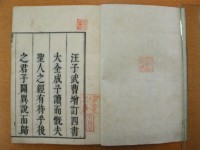 汪子武曹增訂四書
大全成予讀而慨夫
聖人之經有待乎後
之君子闢異說而歸